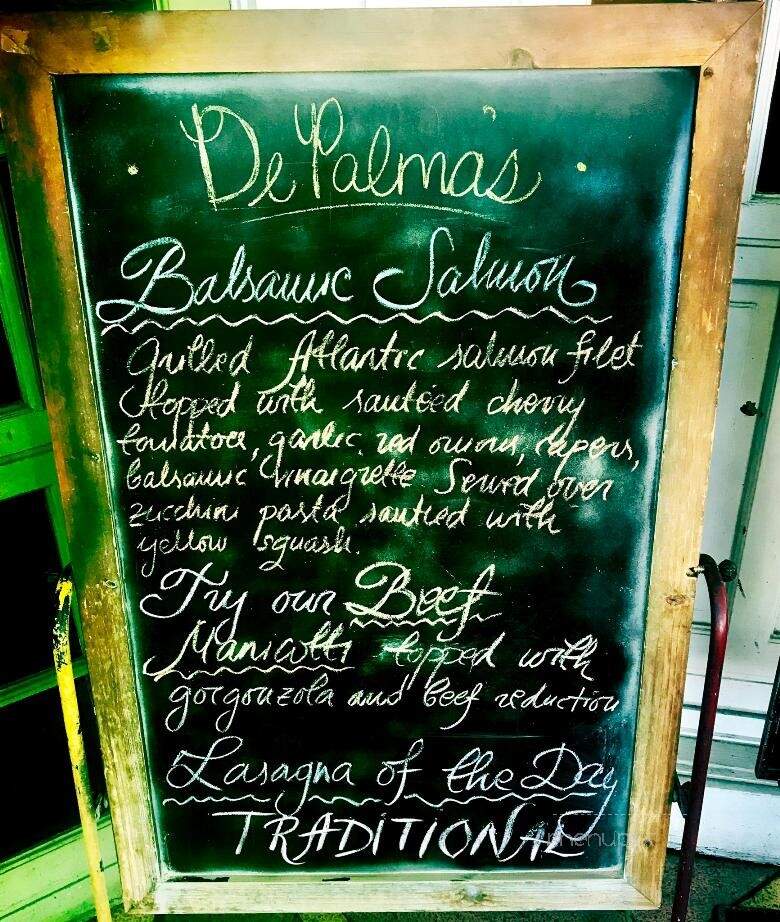 De Palma's
Balsamic Salmon
Grilled Atlantic salmon filet
topped with sautéed cherry
tomatoes, garlic, red onions, capers,
balsamic vinaigrette Served over
zucchini pasta sautied with
yellow squash.
Try our Beef
Manicotti topped with
gorgonzola and beef reduction
Lasagna of the Day
TRADITIONAL